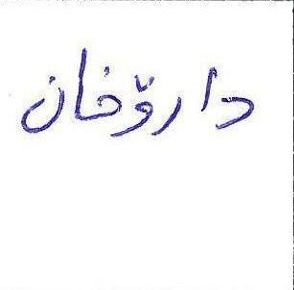 دارۆخان